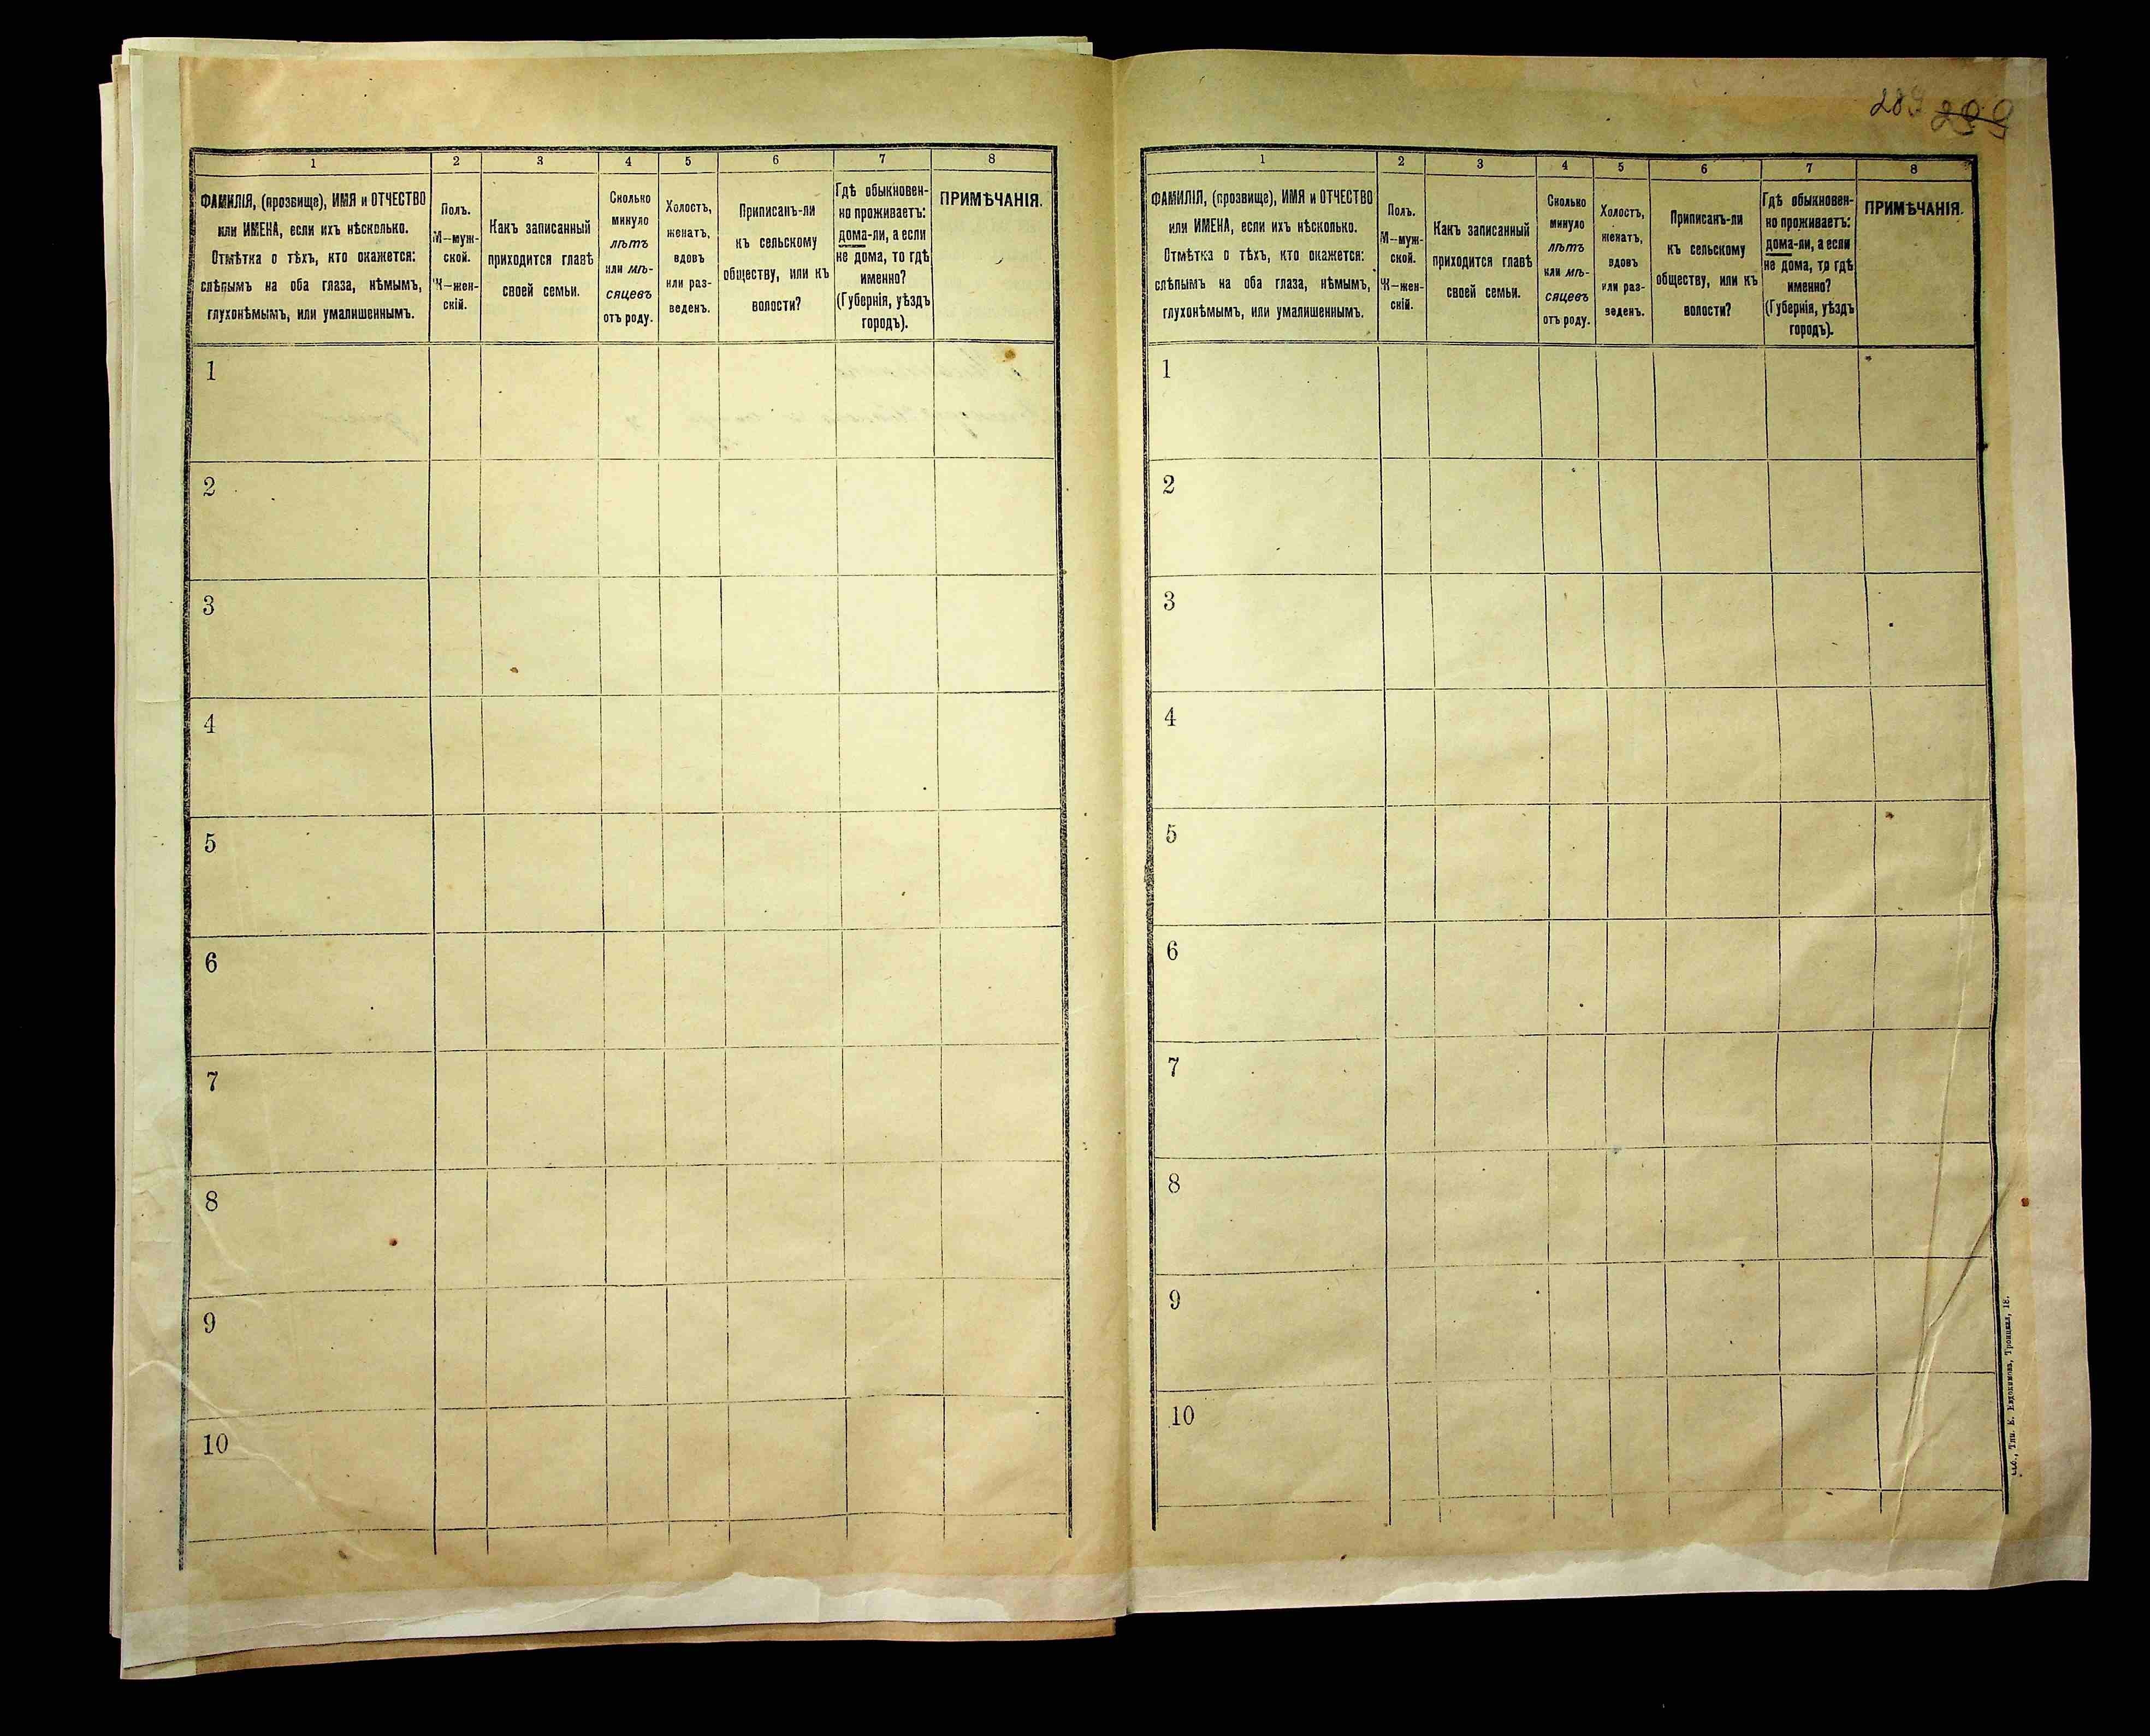 289 299
1 2 3 4 5 6 7 8
ФАМИЛІЯ, (прозвище), ИМЯ и ОТЧЕСТВО
или ИМЕНА, если ихъ нѣсколько.
Отмѣтка о тѣхъ, кто окажется:
слѣпымъ на оба глаза, нѣмымъ,
глухонѣмымъ, или умалишеннымъ.
Полъ.
М—муж-
ской.
Ж—жен-
скій.
Какъ записанный
приходится главѣ
своей семьи.
Сколько
минуло
лѣтъ
или мѣ-
сяцевъ
отъ роду.
Холостъ,
женатъ,
вдовъ
или раз-
веденъ.
Приписанъ-ли
къ сельскому
обществу, или къ
волости?
Гдѣ обыкновен-
но проживаетъ:
дома-ли, а если
не дома, то гдѣ
именно?
(Губернія, уѣздъ
городъ).
ПРИМѢЧАНІЯ.
1
2
3
4
5
6
7
8
9
10
1 2 3 4 5 6 7 8
ФАМИЛІЯ, (прозвище), ИМЯ и ОТЧЕСТВО
или ИМЕНА, если ихъ нѣсколько.
Отмѣтка о тѣхъ, кто окажется:
слѣпымъ на оба глаза, нѣмымъ,
глухонѣмымъ, или умалишеннымъ.
Полъ.
М—муж-
ской.
Ж—жен-
скій.
Какъ записанный
приходится главѣ
своей семьи.
Сколько
минуло
лѣтъ
или мѣ-
сяцевъ
отъ роду.
Холостъ,
женатъ,
вдовъ
или раз-
веденъ.
Приписанъ-ли
къ сельскому
обществу, или къ
волости?
Гдѣ обыкновен-
но проживаетъ:
дома-ли, а если
не дома, то гдѣ
именно?
(Губернія, уѣздъ
городъ).
ПРИМѢЧАНІЯ.
1
2
3
4
5
6
7
8
9
10
Тип. Е. Евдокимова, Троицкая, 18.